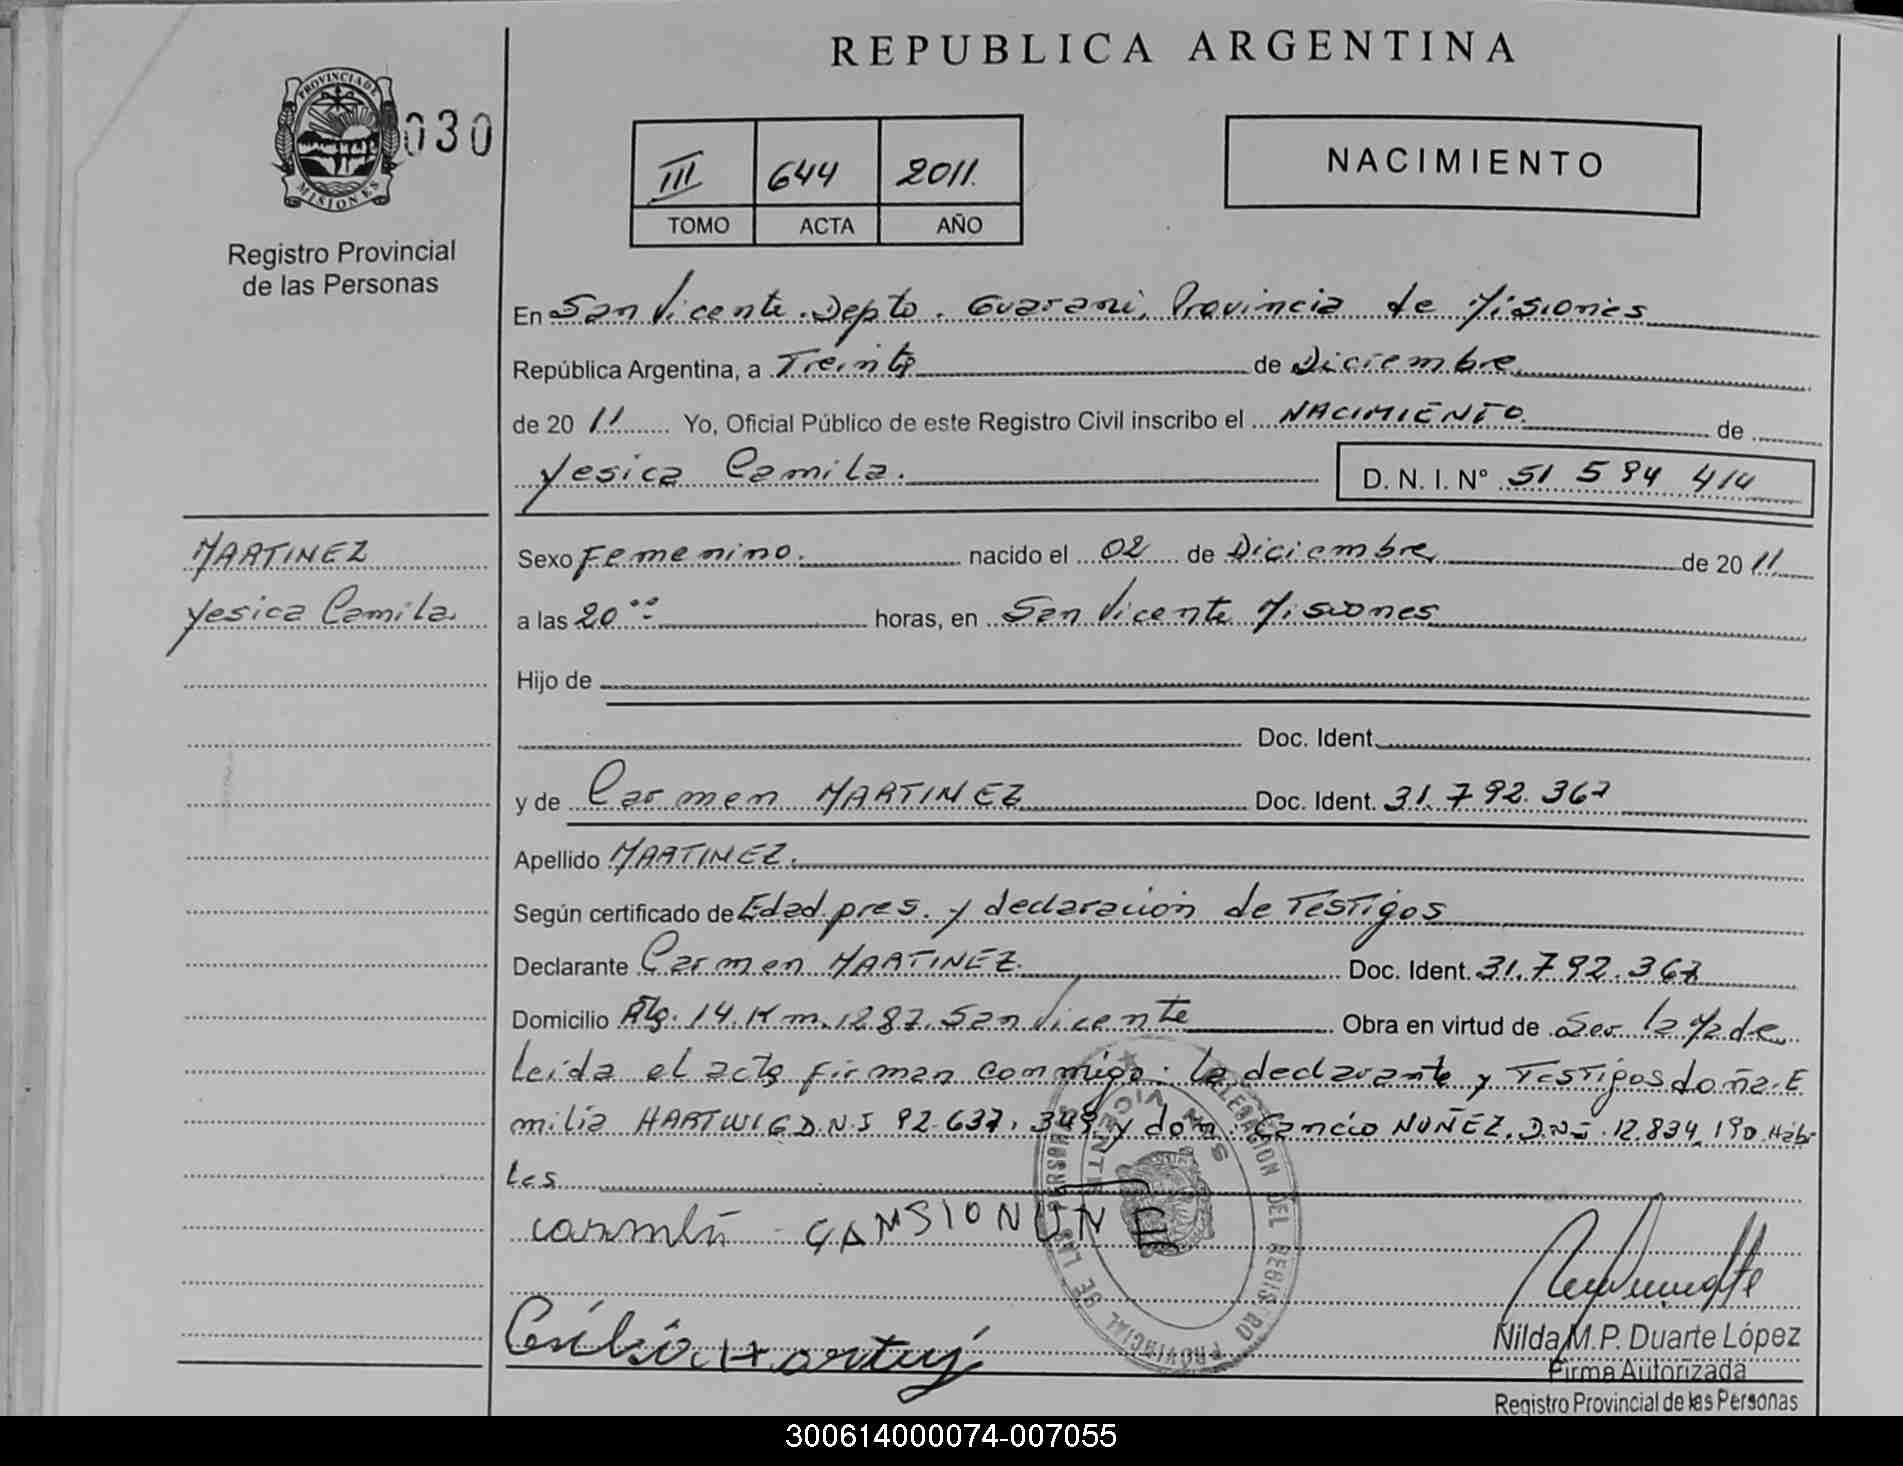 REPUBLICA ARGENTINA
PROVINCIA DE
MISIONES
030
Registro Provincial
de las Personas
III 644 2011.
TOMO ACTA AÑO
NACIMIENTO
En San Vicente. Depto. Guaraní, Provincia de Misiones
República Argentina, a Treinta de Diciembre
de 2011 Yo, Oficial Público de este Registro Civil inscribo el NACIMIENTO de
Yesica Camila. D. N. I. N° 51 594 414
MARTINEZ
Yesica Camila.
Sexo Femenino. nacido el 02 de Diciembre de 2011
a las 20 horas, en San Vicente Misiones
Hijo de
Doc. Ident.
y de Carmen MARTINEZ Doc. Ident. 31.792.367
Apellido MARTINEZ.
Según certificado de Edad pres. y declaración de Testigos
Declarante Carmen MARTINEZ. Doc. Ident. 31.792.367
Domicilio 14. Km. 1287. San Vicente Obra en virtud de Ser la Made
Leida el acta firman conmigo: la declarante y Testigos doña E
milia HARTWIG D.N.I 92.637.349 y don Cancio NUÑEZ. D.N.I. 12.834.190 Hábi
les
DELEGACION DEL REGISTRO PROVINCIAL DE LAS PERSONAS
SAN VICENTE
Nilda M.P. Duarte López
Firma Autorizada
Registro Provincial de las Personas
300614000074-007055